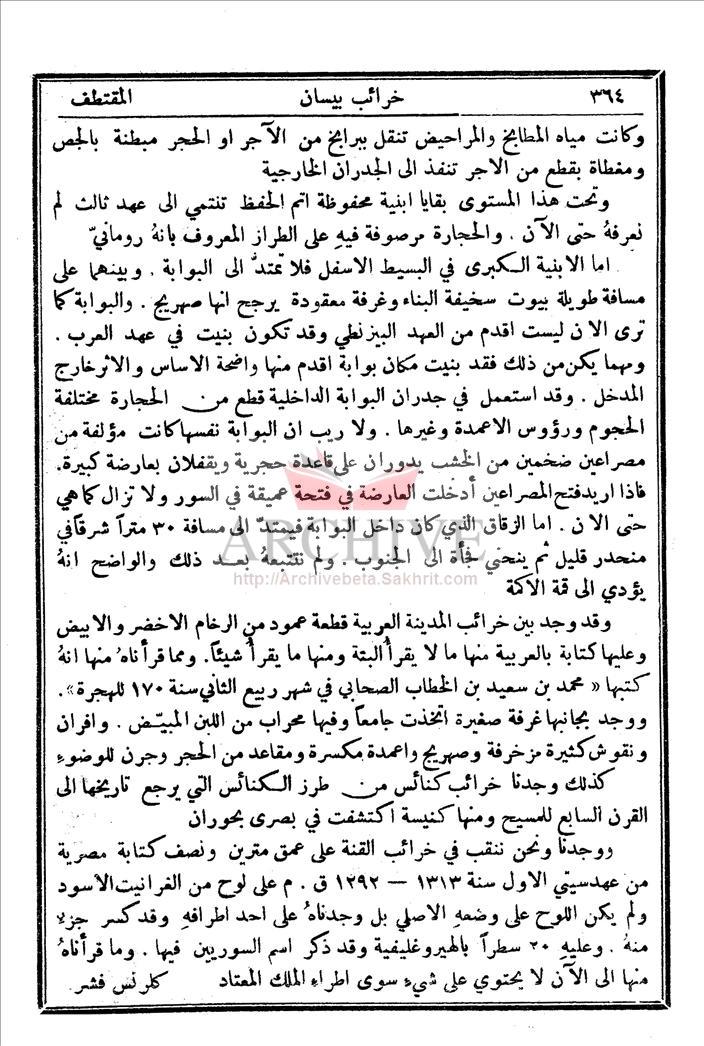 ٣٦٤ خرائب بيسان المقتطف
وكانت مياه المطابخ والمراحيض تنقل ببرابخ من الآجر او الحجر مبطنة بالجص
ومغطاة بقطع من الاجر تنفذ الى الجدران الخارجية
وتحت هذا المستوى بقايا ابنية محفوظة اتم الحفظ تنتمي الى عهد ثالث لم
نعرفهُ حتى الآن . والحجارة مرصوفة فيهِ على الطراز المعروف بانهُ رومانيّ
اما الابنية الكبرى في البسيط الاسفل فلا تمتدُّ الى البوابة . وبينهما على
مسافة طويلة بيوت سخيفة البناء وغرفة معقودة يرجح انها صهريج . والبوابة كما
ترى الان ليست اقدم من العهد البيزنطي وقد تكون بنيت في عهد العرب .
ومهما يكن من ذلك فقد بنيت مكان بوابة اقدم منها واضحة الاساس والاثر خارج
المدخل . وقد استعمل في جدران البوابة الداخلية قطع من الحجارة مختلفة
الحجوم ورؤوس الاعمدة وغيرها . ولا ريب ان البوابة نفسها كانت مؤلفة من
مصراعين ضخمين من الخشب يدوران على قاعدة حجرية ويقفلان بعارضة كبيرة.
فاذا اريد فتح المصراعين أدخلت العارضة في فتحة عميقة في السور ولا تزال كما هي
حتى الان . اما الزقاق الذي كان داخل البوابة فيمتدّ الى مسافة ٣٠ متراً شرقاً في
منحدر قليل ثم ينحني فجأة الى الجنوب . ولم نتتبعهُ بعد ذلك والواضح انهُ
يؤدي الى قمة الاكمة
وقد وجد بين خرائب المدينة العربية قطعة عمود من الرخام الاخضر والابيض
وعليها كتابة بالعربية منها ما لا يقرأ البتة ومنها ما يقرأ شيئاً. ومما قرأناهُ منها انهُ
كتبها « محمد بن سعيد بن الخطاب الصحابي في شهر ربيع الثاني سنة ١٧٠ للهجرة».
ووجد بجانبها غرفة صغيرة اتخذت جامعاً وفيها محراب من اللبن المبيّض . وافران
ونقوش كثيرة مزخرفة وصهريج واعمدة مكسرة ومقاعد من الحجر وجرن للوضوءِ
كذلك وجدنا خرائب كنائس من طرز الكنائس التي يرجع تاريخها الى
القرن السابع للمسيح ومنها كنيسة اكتشفت في بصرى بحوران
ووجدنا ونحن ننقب في خرائب القنة على عمق مترين ونصف كتابة مصرية
من عهد سيتي الاول سنة ١٣١٣ — ١٢٩٢ ق . م على لوح من الغرانيت الاسود
ولم يكن اللوح على وضعهِ الاصلي بل وجدناهُ على احد اطرافهِ وقد كسر جزءٌ
منهُ . وعليهِ ٢٠ سطراً بالهيروغليفية وقد ذكر اسم السوريين فيها . وما قرأناهُ
منها الى الآن لا يحتوي على شيءٍ سوى اطراءِ الملك المعتاد كلرنس فشر
ARCHIVE
http://Archivebeta.Sakhrit.com